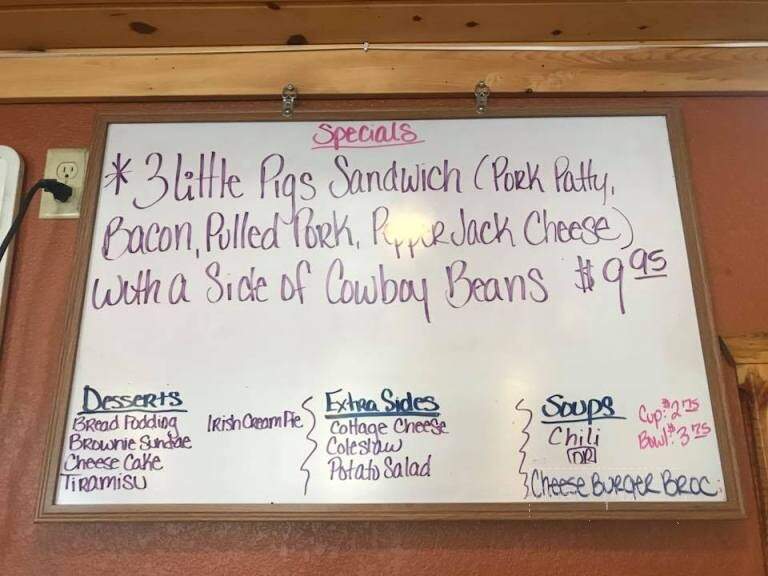 Specials
* 3 Little Pigs Sandwich (Pork Patty,
Bacon, Pulled Pork, Pepper Jack Cheese)
with a Side of Cowboy Beans $9.95
Desserts
Bread Pudding
Irish Cream Pie
Brownie Sundae
Cheese Cake
Tiramisu
Extra Sides
Cottage Cheese
Coleslaw
Potato Salad
Soups
Cup: $2.75
Bowl: $3.75
Chili
OR
Cheese Burger Broc.